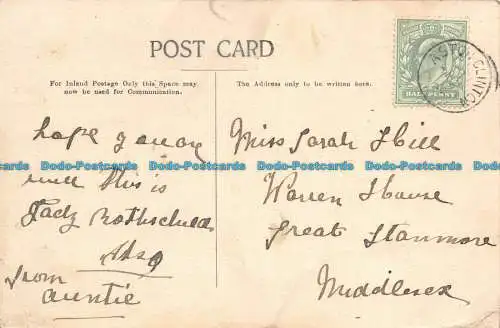 POST CARD
For Inland Postage Only this Space may
now be used for Communication.
The Address only to be written here.
HALFPENNY
ASTON CLINTON
hope you are
well this is
Lady Rothschild
from
Auntie
Miss Sarah Hill
Warren House
Great Stanmore
Middlesex
Dodo-Postcards Dodo-Postcards Dodo-Postcards Dodo-Postcards